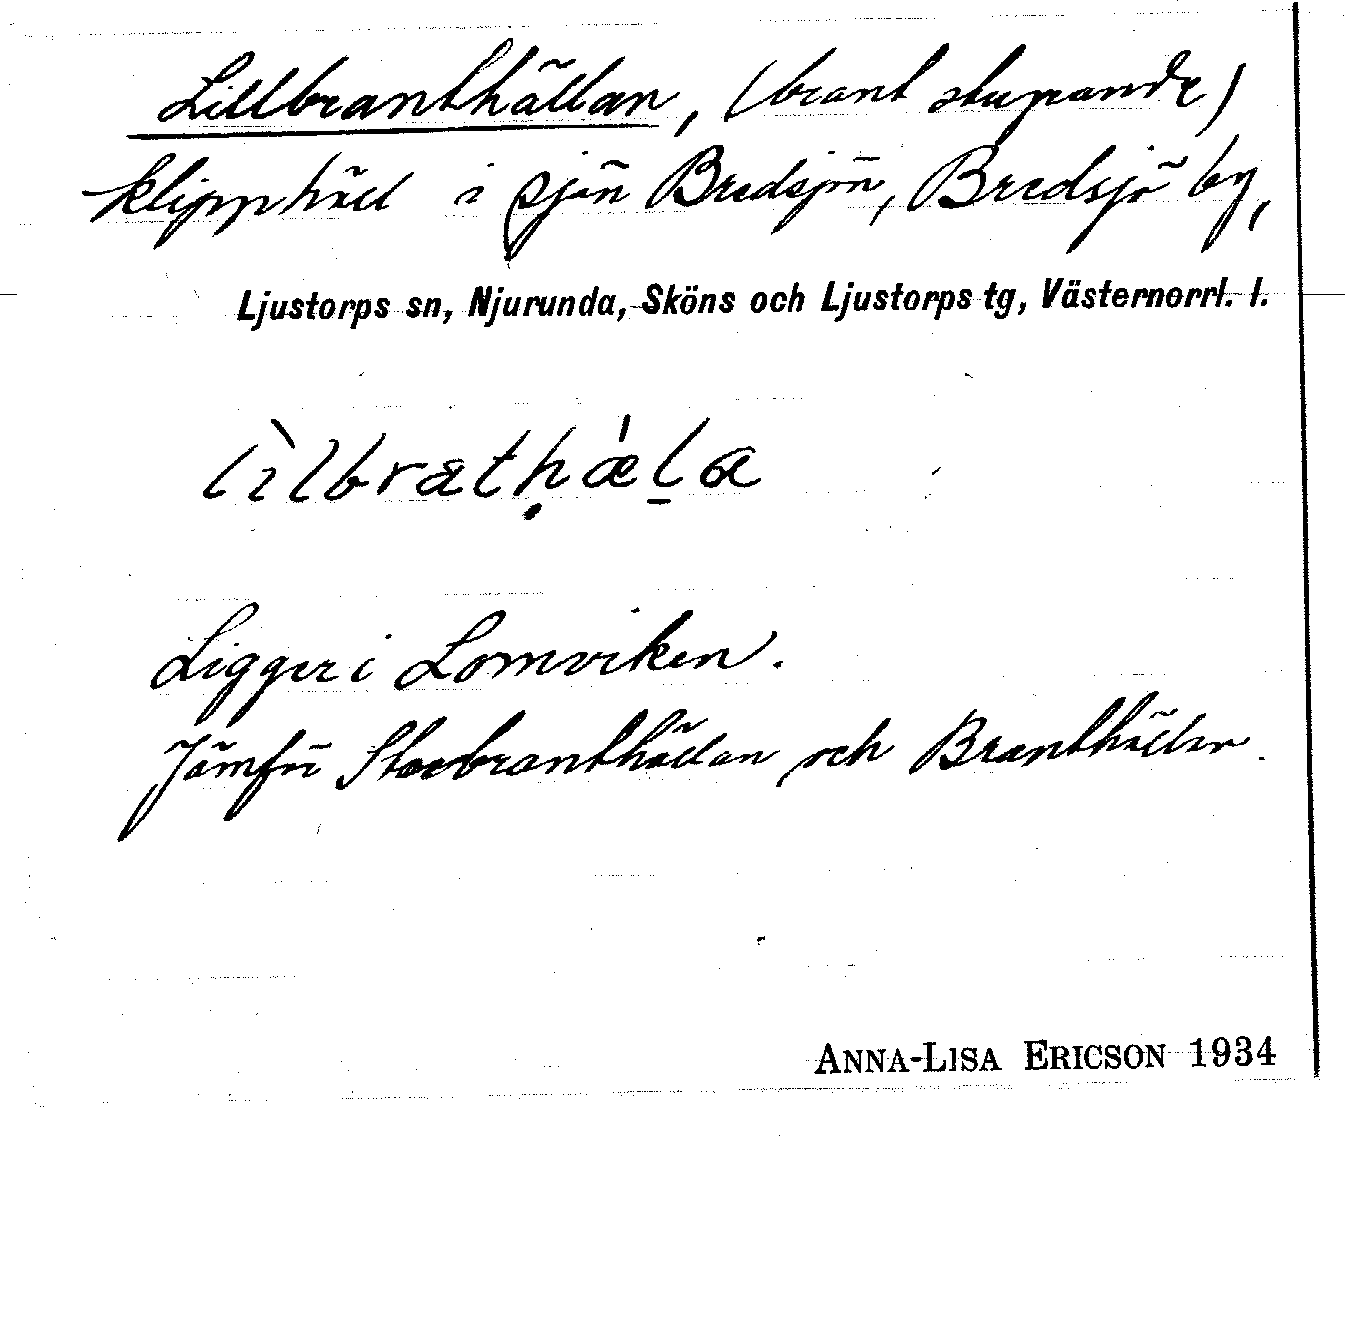 Lillbranthällan, (brant stupande)
klipphäll i sjön Bredsjön, Bredsjö by,
Ljustorps sn, Njurunda, Sköns och Ljustorps tg, Västernorrl. l.
lìlbratḥǽḻa
Ligger i Lomviken.
Jämför Storbranthällan och Branthällan.
ANNA-LISA ERICSON 1934